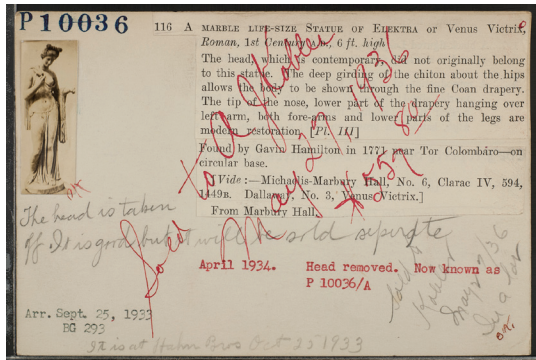 P10036
116 A MARBLE LIFE-SIZE STATUE OF ELEKTRA or Venus Victrix,
Roman, 1st Century A.D., 6 ft. high
The head, which is contemporary did not originally belong
to this statue. The deep girding of the chiton about the hips
allows the body to be shown through the fine Coan drapery.
The tip of the nose, lower part of the drapery hanging over
left arm, both fore-arms and lower parts of the legs are
modern restoration. [Pl. III]
Found by Gavin Hamilton in 1771 near Tor Colombáro—on
circular base.
[Vide:—Michaelis-Marbury Hall, No. 6, Clarac IV, 594,
1449B. Dallaway, No. 3, Venus Victrix.]
From Marbury Hall.
Sold to
May 27, 1936
The head is taken
off It is good but will be sold seperate
April 1934. Head removed. Now known as
P 10036/A
Sold to
May 27/36
Arr. Sept. 25, 1933
BG 293
It is at Hahn Bros Oct 25 1933